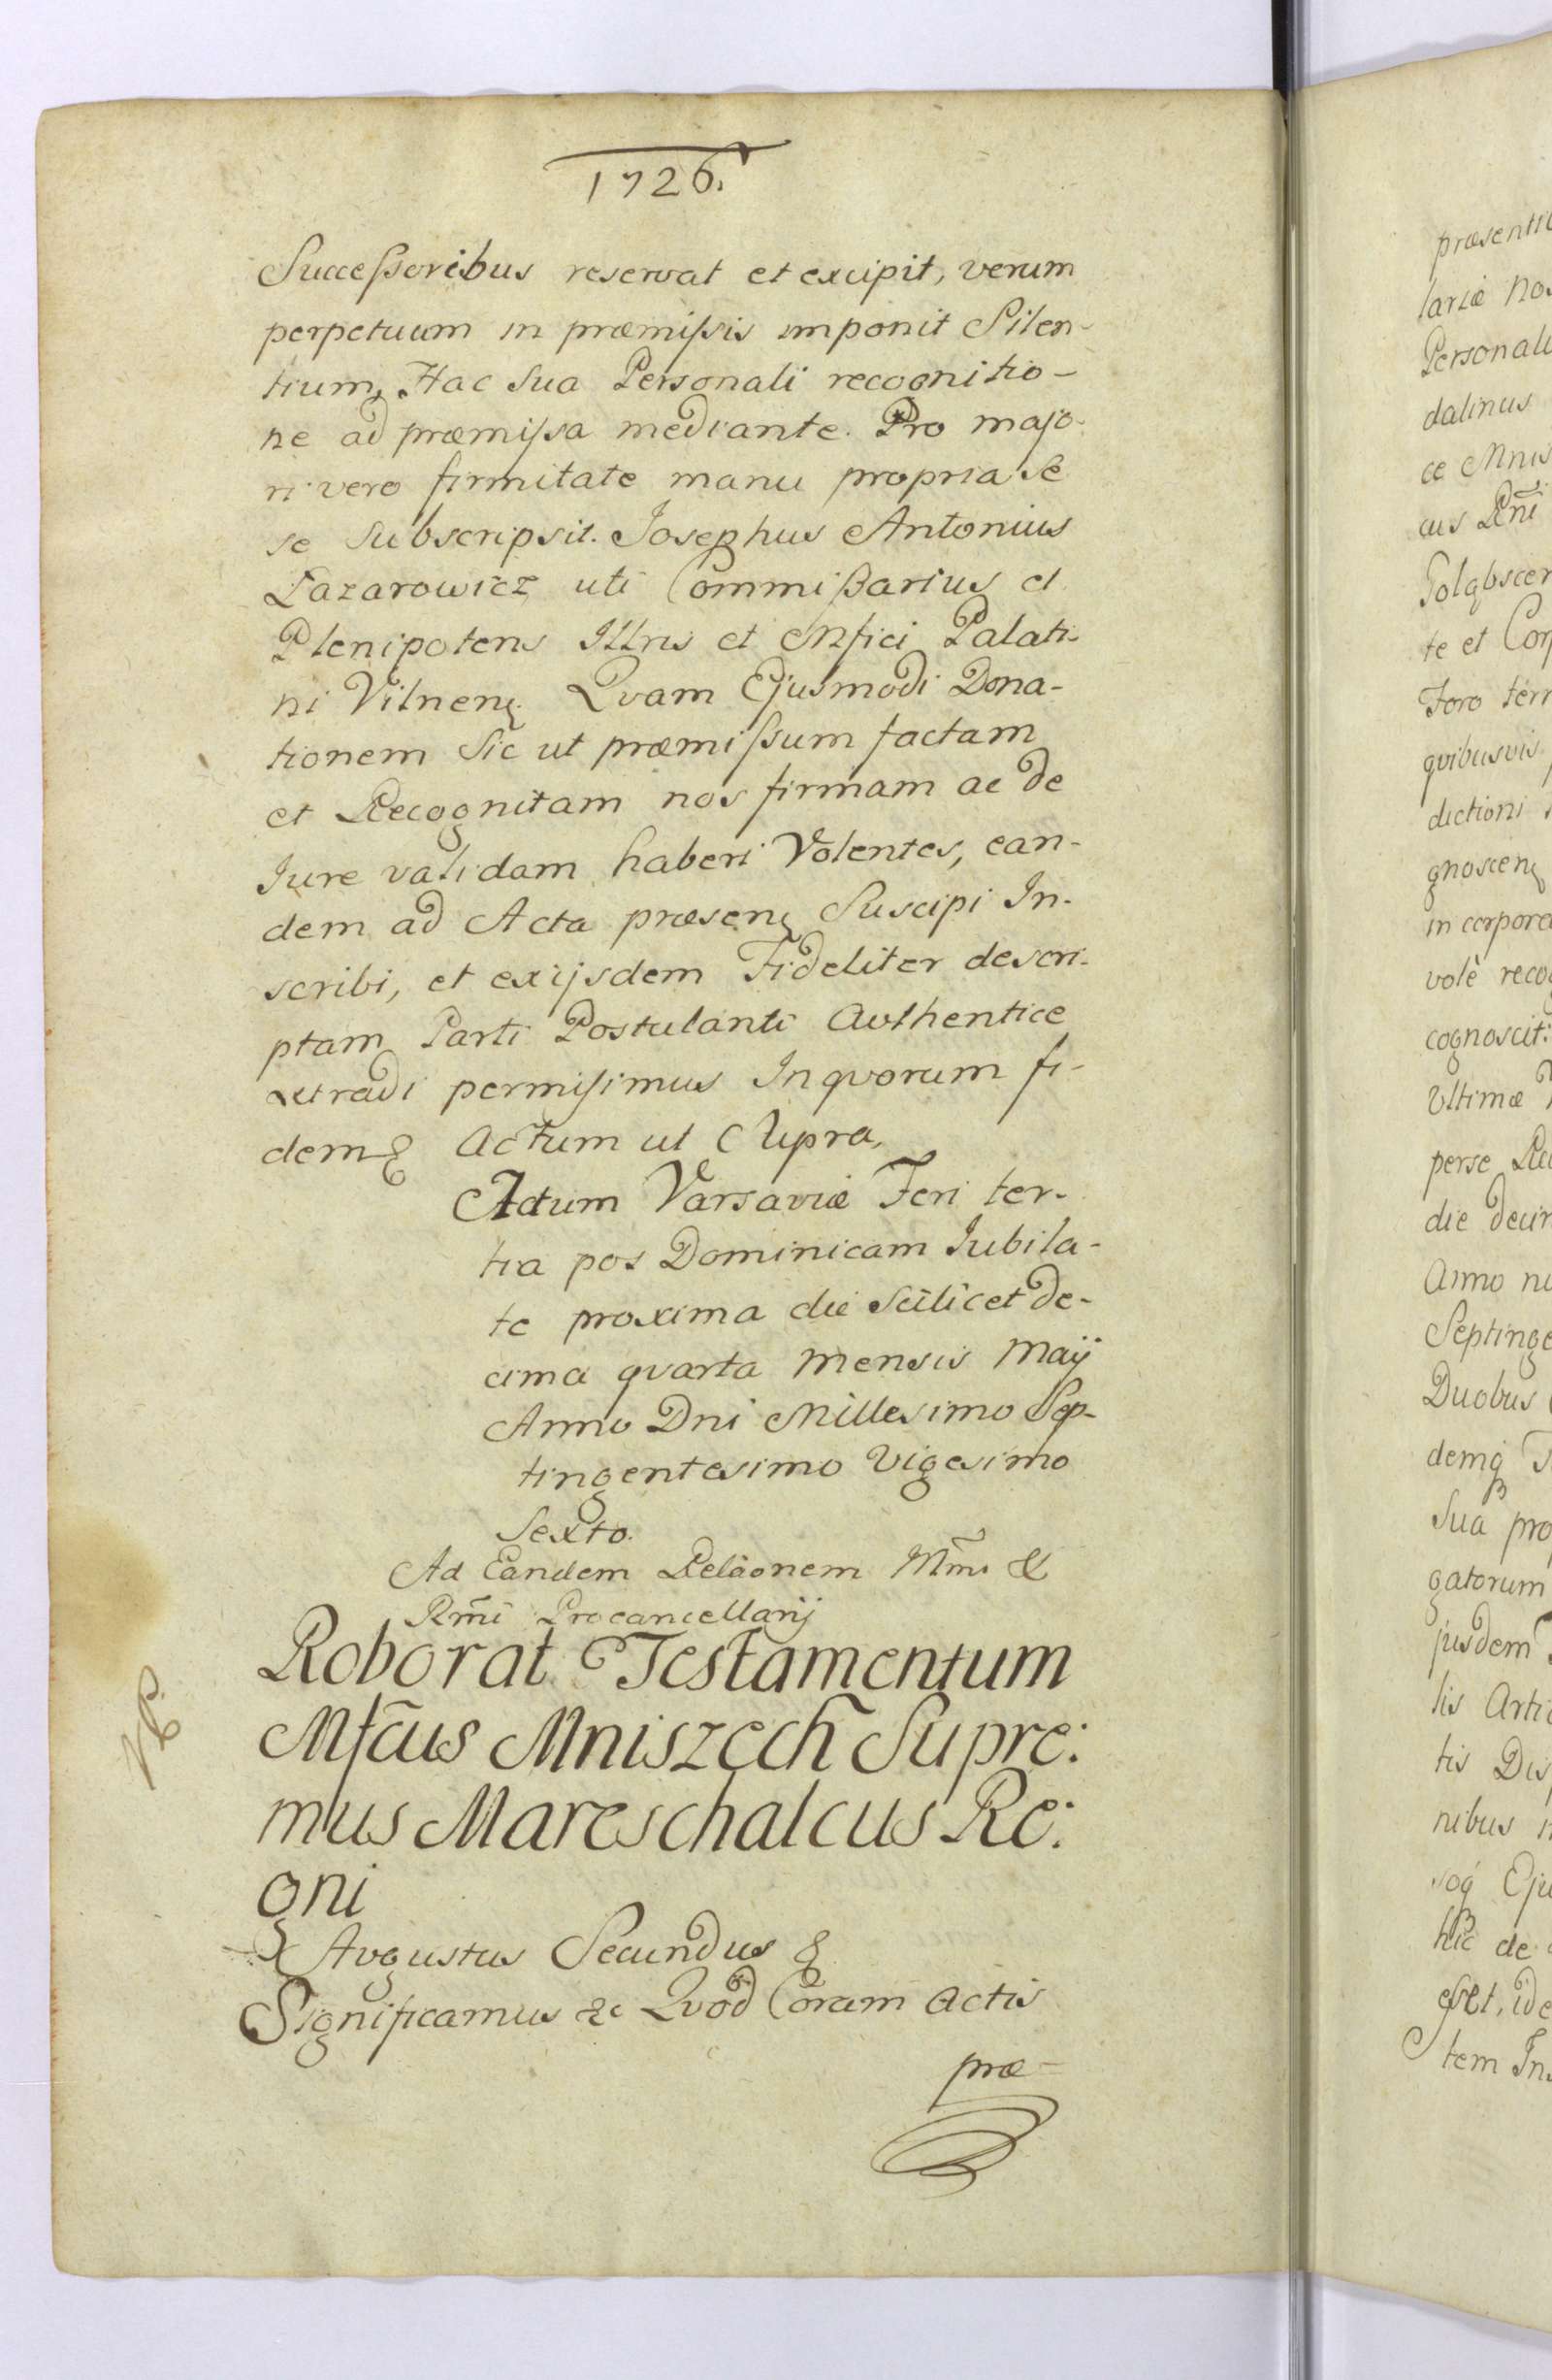 1726.
Successoribus reservat et excipit, verum
perpetuum in præmissis imponit Silen-
tium, Hac Sua Personali recognitio-
ne ad præmissa mediante. Pro majo-
ri vero firmitate manu propria Se
se Subscripsit. Josephus Antonius
Lazarowicz uti Commissarius et
Plenipotens Illris et Mfici Palati-
ni Vilnenς. Qvam Ejusmodi Dona-
tionem Sic ut præmissum factam
et Recognitam nos firmam ac de
Jure validam haberi Volentes, ean-
dem ad Acta præsenς Suscipi In-
scribi, et exijsdem Fideliter descri-
ptam Parti Postulanti Authentice
extradi permisimus In qvorum fi-
dem& Actum ut Supra.
Actum Varsaviæ Feri ter-
tia pos Dominicam Jubila-
te proxima die Scilicet de-
cima qvarta Mensis Maij
Anno Dni Millesimo Sep-
tingentesimo Vigesimo
Sexto.
Ad Eandem Relãonem &
Rm̃i Procancellarij
Roborat Testamentum
Mfcus Mniszech Supre:
mus Mareschalcus Re:
gni
Avgustus Secundus &
Significamus &c Qvod Coram Actis
præ-
præsenti
lariæ nos
Personali
dalinus
ce Mnis
cus Rñi
Goląbscen
te et Corp
Foro terr
qvibusvis
dictioni
gnoscenς
in corpore
volè recog
cognoscit:
Ultimæ
perse Rec
die decim
Anno mi
Septinge
Duobus
demq T
Sua prop
gatorum
jusdem
lis Artic
tis Disp
nibus i
soq Eju
hic de
esset, ide
tem Ins